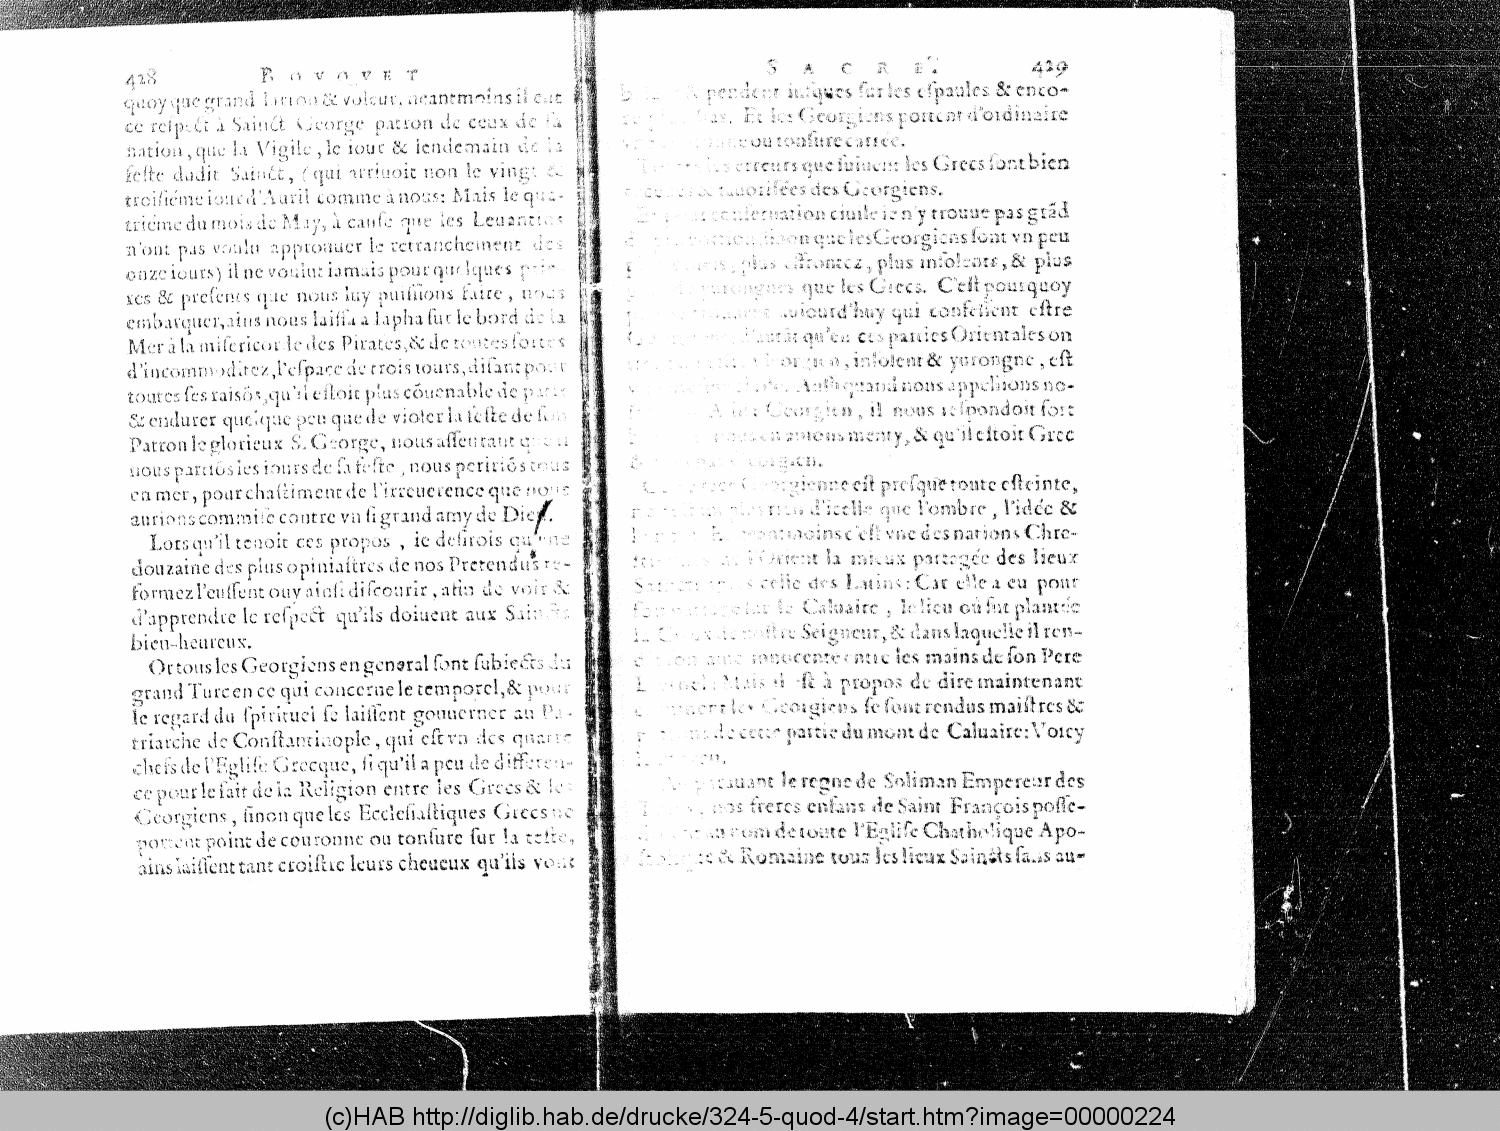 428 BOVQVET
quoy que grand larron & voleur, neantmoins il eut
ce respect à Sainct George patron de ceux de sa
nation, que la Vigile, le iour & lendemain de la
feste dudit Sainct, (qui arriuoit non le vingt &
troisiéme iour d'Auril comme à nous: Mais le qua-
triéme du mois de May, à cause que les Leuantins
n'ont pas voulu approuuer le retranchement des
onze iours) il ne voulut iamais pour quelques prie-
res & presents que nous luy puissions faire, nous
embarquer, ains nous laissa à Iapha sur le bord de la
Mer à la misericorde des Pirates, & de toutes sortes
d'incommoditez, l'espace de trois iours, disant pour
toutes ses raisõs, qu'il estoit plus cõuenable de patir
& endurer quelque peu que de violer la feste de son
Patron le glorieux S. George, nous asseurant que si
nous partiõs les iours de sa feste, nous peririõs tous
en mer, pour chastiment de l'irreuerence que nous
aurions commise contre vn si grand amy de Dieu.
Lors qu'il tenoit ces propos, ie desirois qu'vne
douzaine des plus opiniastres de nos Pretendus re-
formez l'eussent ouy ainsi discourir, afin de voir &
d'apprendre le respect qu'ils doiuent aux Saincts
bien-heureux.
Or tous les Georgiens en general sont subiects du
grand Turc en ce qui concerne le temporel, & pour
le regard du spirituel se laissent gouuerner au Pa-
triarche de Constantinople, qui est vn des quatre
chefs de l'Eglise Grecque, si qu'il a peu de differen-
ce pour le fait de la Religion entre les Grecs & les
Georgiens, sinon que les Ecclesiastiques Grecs ne
portent point de couronne ou tonsure sur la teste,
ains laissent tant croistre leurs cheueux qu'ils vont
SACRE'. 429
& pendent iusques sur les espaules & enco-
bas. Et les Georgiens portent d'ordinaire
ou tonsure carrée.
erreurs que suiuent les Grecs sont bien
& fauorisées des Georgiens.
conseruation ciuile ie n'y trouue pas grãd
sinon que les Georgiens sont vn peu
plus effrontez, plus insolents, & plus
yurongnes que les Grecs. C'est pourquoy
auiourd'huy qui confessent estre
d'autãt qu'en ces parties Orientales on
Georgien, insolent & yurongne, est
Aussi quand nous appellions no-
Georgien, il nous respondoit fort
menty, & qu'il estoit Grec
& Georgien.
Georgienne est presque toute esteinte,
d'icelle que l'ombre, l'idée &
neantmoins c'est vne des nations Chre-
l'Orient la mieux partagée des lieux
celle des Latins: Car elle a eu pour
le Caluaire, le lieu où fut plantée
la Croix de nostre Seigneur, & dans laquelle il ren-
son ame innocente entre les mains de son Pere
Mais il est à propos de dire maintenant
comment les Georgiens se sont rendus maistres &
de cette partie du mont de Caluaire: Voicy
le regne de Soliman Empereur des
nos freres enfans de Saint François posse-
nom de toute l'Eglise Chatholique Apo-
& Romaine tous les lieux Saincts sans au-
(c)HAB http://diglib.hab.de/drucke/324-5-quod-4/start.htm?image=00000224